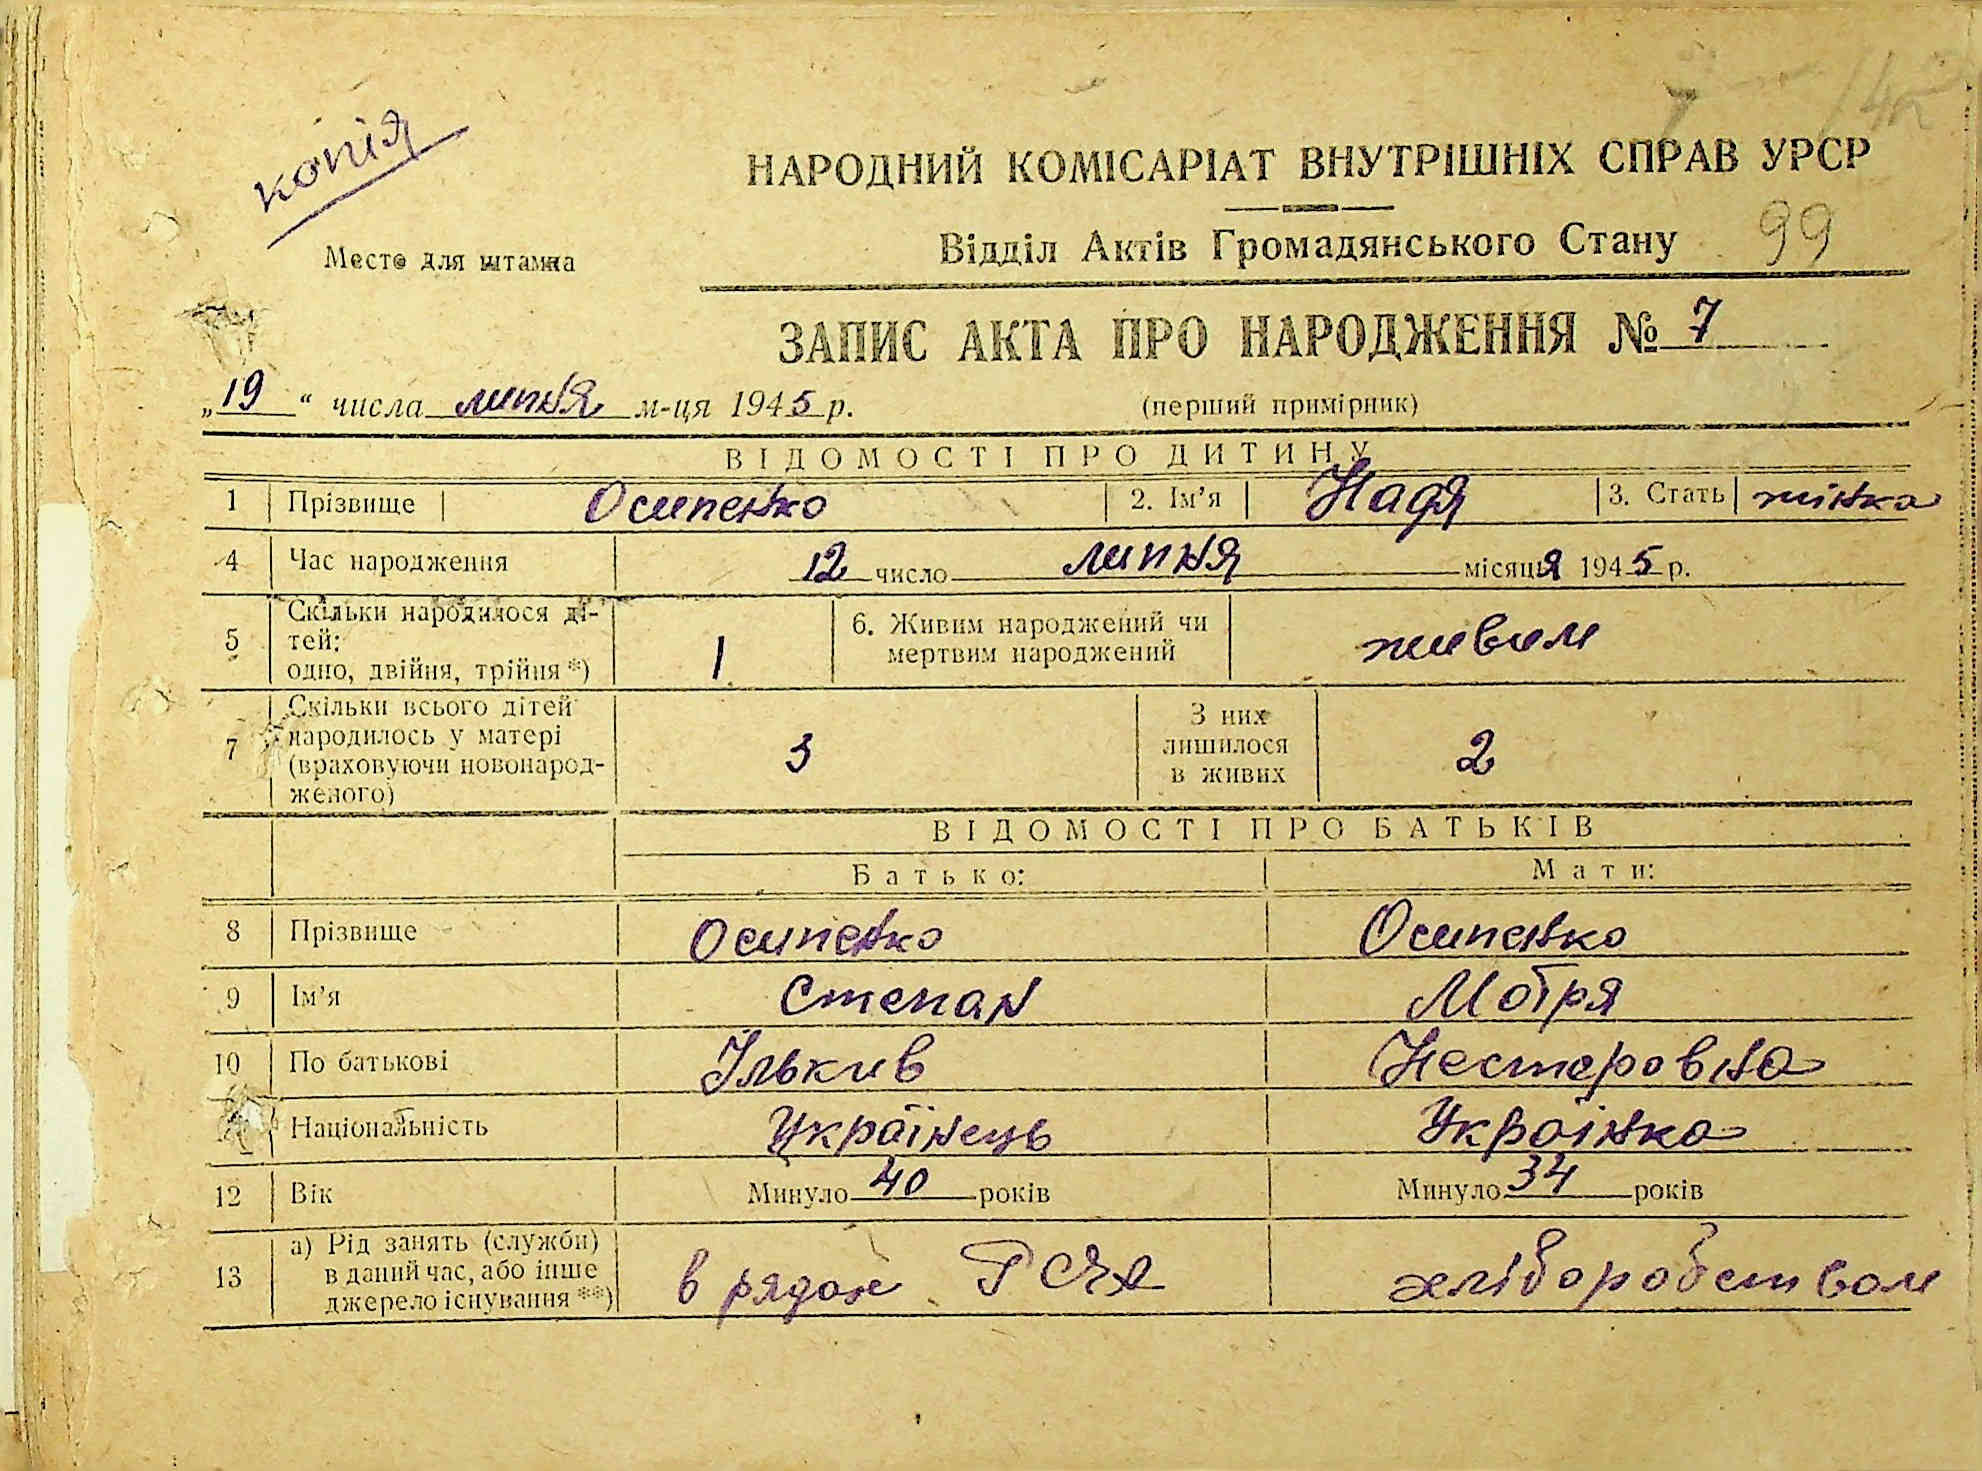 копія
НАРОДНИЙ КОМІСАРІАТ ВНУТРІШНІХ СПРАВ УРСР
Место для штампа
Відділ Актів Громадянського Стану 99
ЗАПИС АКТА ПРО НАРОДЖЕННЯ № 7
„19“ числа липня м-ця 1945 р. (перший примірник)
ВІДОМОСТІ ПРО ДИТИНУ
1 Прізвище Осипенко 2. Ім’я Надя 3. Стать жінка
4 Час народження 12 число липня місяця 1945 р.
5 Скільки народилося ді-
тей:
одно, двійня, трійня *) 1 6. Живим народжений чи
мертвим народжений живим
7 Скільки всього дітей
народилось у матері
(враховуючи новонарод-
женого) 3 З них
лишилося
в живих 2
ВІДОМОСТІ ПРО БАТЬКІВ
Батько: Мати:
8 Прізвище Осипенко Осипенко
9 Ім’я Степан Мотря
10 По батькові Ількив Нестеровна
Національність Українець Українка
12 Вік Минуло 40 років Минуло 34 років
13 а) Рід занять (служби)
в даний час, або інше
джерело існування **) в рядах хліборобством